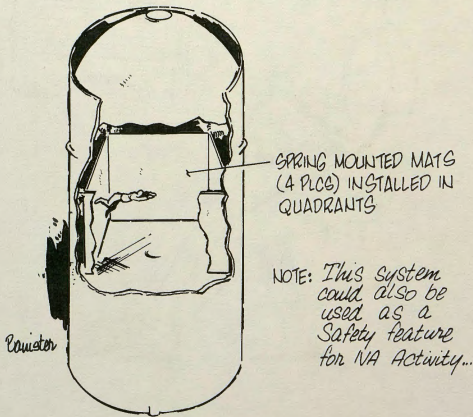 SPRING MOUNTED MATS
(4 PLCS) INSTALLED IN
QUADRANTS
NOTE: This system
could also be
used as a
Safety feature
for IVA Activity...
Banister